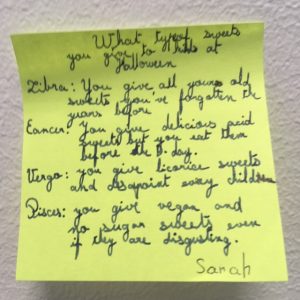 What type of sweets
you give to kids at
Halloween
Libra: You give all yours old
sweets you've forgotten the
years before
Cancer: You give delicious acid
sweets but you eat them
before the D. day.
Vergo: you give licorice sweets
and disapoint many children
Pisces: you give vegan and
no sugar sweets even
if they are disgusting.
Sarah